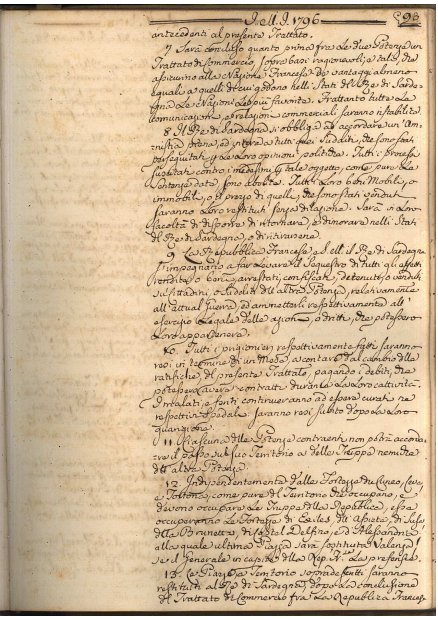 1796
antecedenti al presente Trattato.
7. Sarà concluso quanto prima fra le due Potenze un
Trattato di Commercio, sopra basi ragionevoli, e tali, che
assicurino alla Nazione Francese de' vantaggi almeno
eguali a quelli di cui godono nelli Stati del Re di Sarde-
gna le Nazioni le più favorite. Frattanto tutte le
comunicazioni, e relazioni commerciali saranno ristabilite.
8. Il Re di Sardegna si obbliga ad accordare un'Am-
nistia piena, ed intera a tutti quei Sudditi, che sono stati
perseguitati per le loro opinioni politiche. Tutti i processi
suscitati contro i medesimi per tale oggetto, come pure le
Sentenze date, sono abolite. Tutti i loro beni Mobili, o
immobili, o il prezzo di quelli, che sono stati venduti
saranno loro restituiti senza dilazione. Sarà in loro
facoltà di disporne, di ritornare, e dimorare nelli Stati
del Re di Sardegna, o di ritirarsene.
9. La Repubblica Francese, e S. M. il Re di Sardegna
s'impegnano a far levare il Sequestro di tutti gli effetti
rendite, o beni arrestati, confiscati, detenuti, o venduti
su Cittadini, o Sudditi dell'altra Potenza, relativamente
all'attual Guerra, ed ammetterli respettivamente all'
esercizio Legale delle azioni, o dritti, che potessero
loro appartenere.
10. Tutti i prigionieri respettivamente fatti saranno
resi in termine di un Mese, a contare dal cambio delle
ratifiche del presente Trattato, pagando i debiti, che
potessero avere contratti durante la loro cattività.
I malati, e feriti continueranno ad essere curati ne
respettivi Spedali: saranno resi subito dopo la loro
guarigione.
11. Ciascuna delle Potenze contraenti non potrà accorda-
re il passo sul suo Territorio a delle Truppe nemiche
dell'altra Potenza.
12. Indipendentemente dalle Fortezze di Cuneo, Ceva,
e Tortona, come pure del Territorio che occupano, e
devono occupare le Truppe della Repubblica, essa
occuperanno le Fortezze di Exiles, dell'Assieta, di Susa,
della Brunetta, di Castel Delfino, e d'Alessandria
alla quale ultima Piazza sarà sostituita Valenza
se il Generale in capite della Rep. Fr. la preferisce.
13. Le Piazze, e Territorio sopradescritti saranno
restituiti al Re di Sardegna, dopo la conclusione
del Trattato di Commercio fra la Repubblica Francese